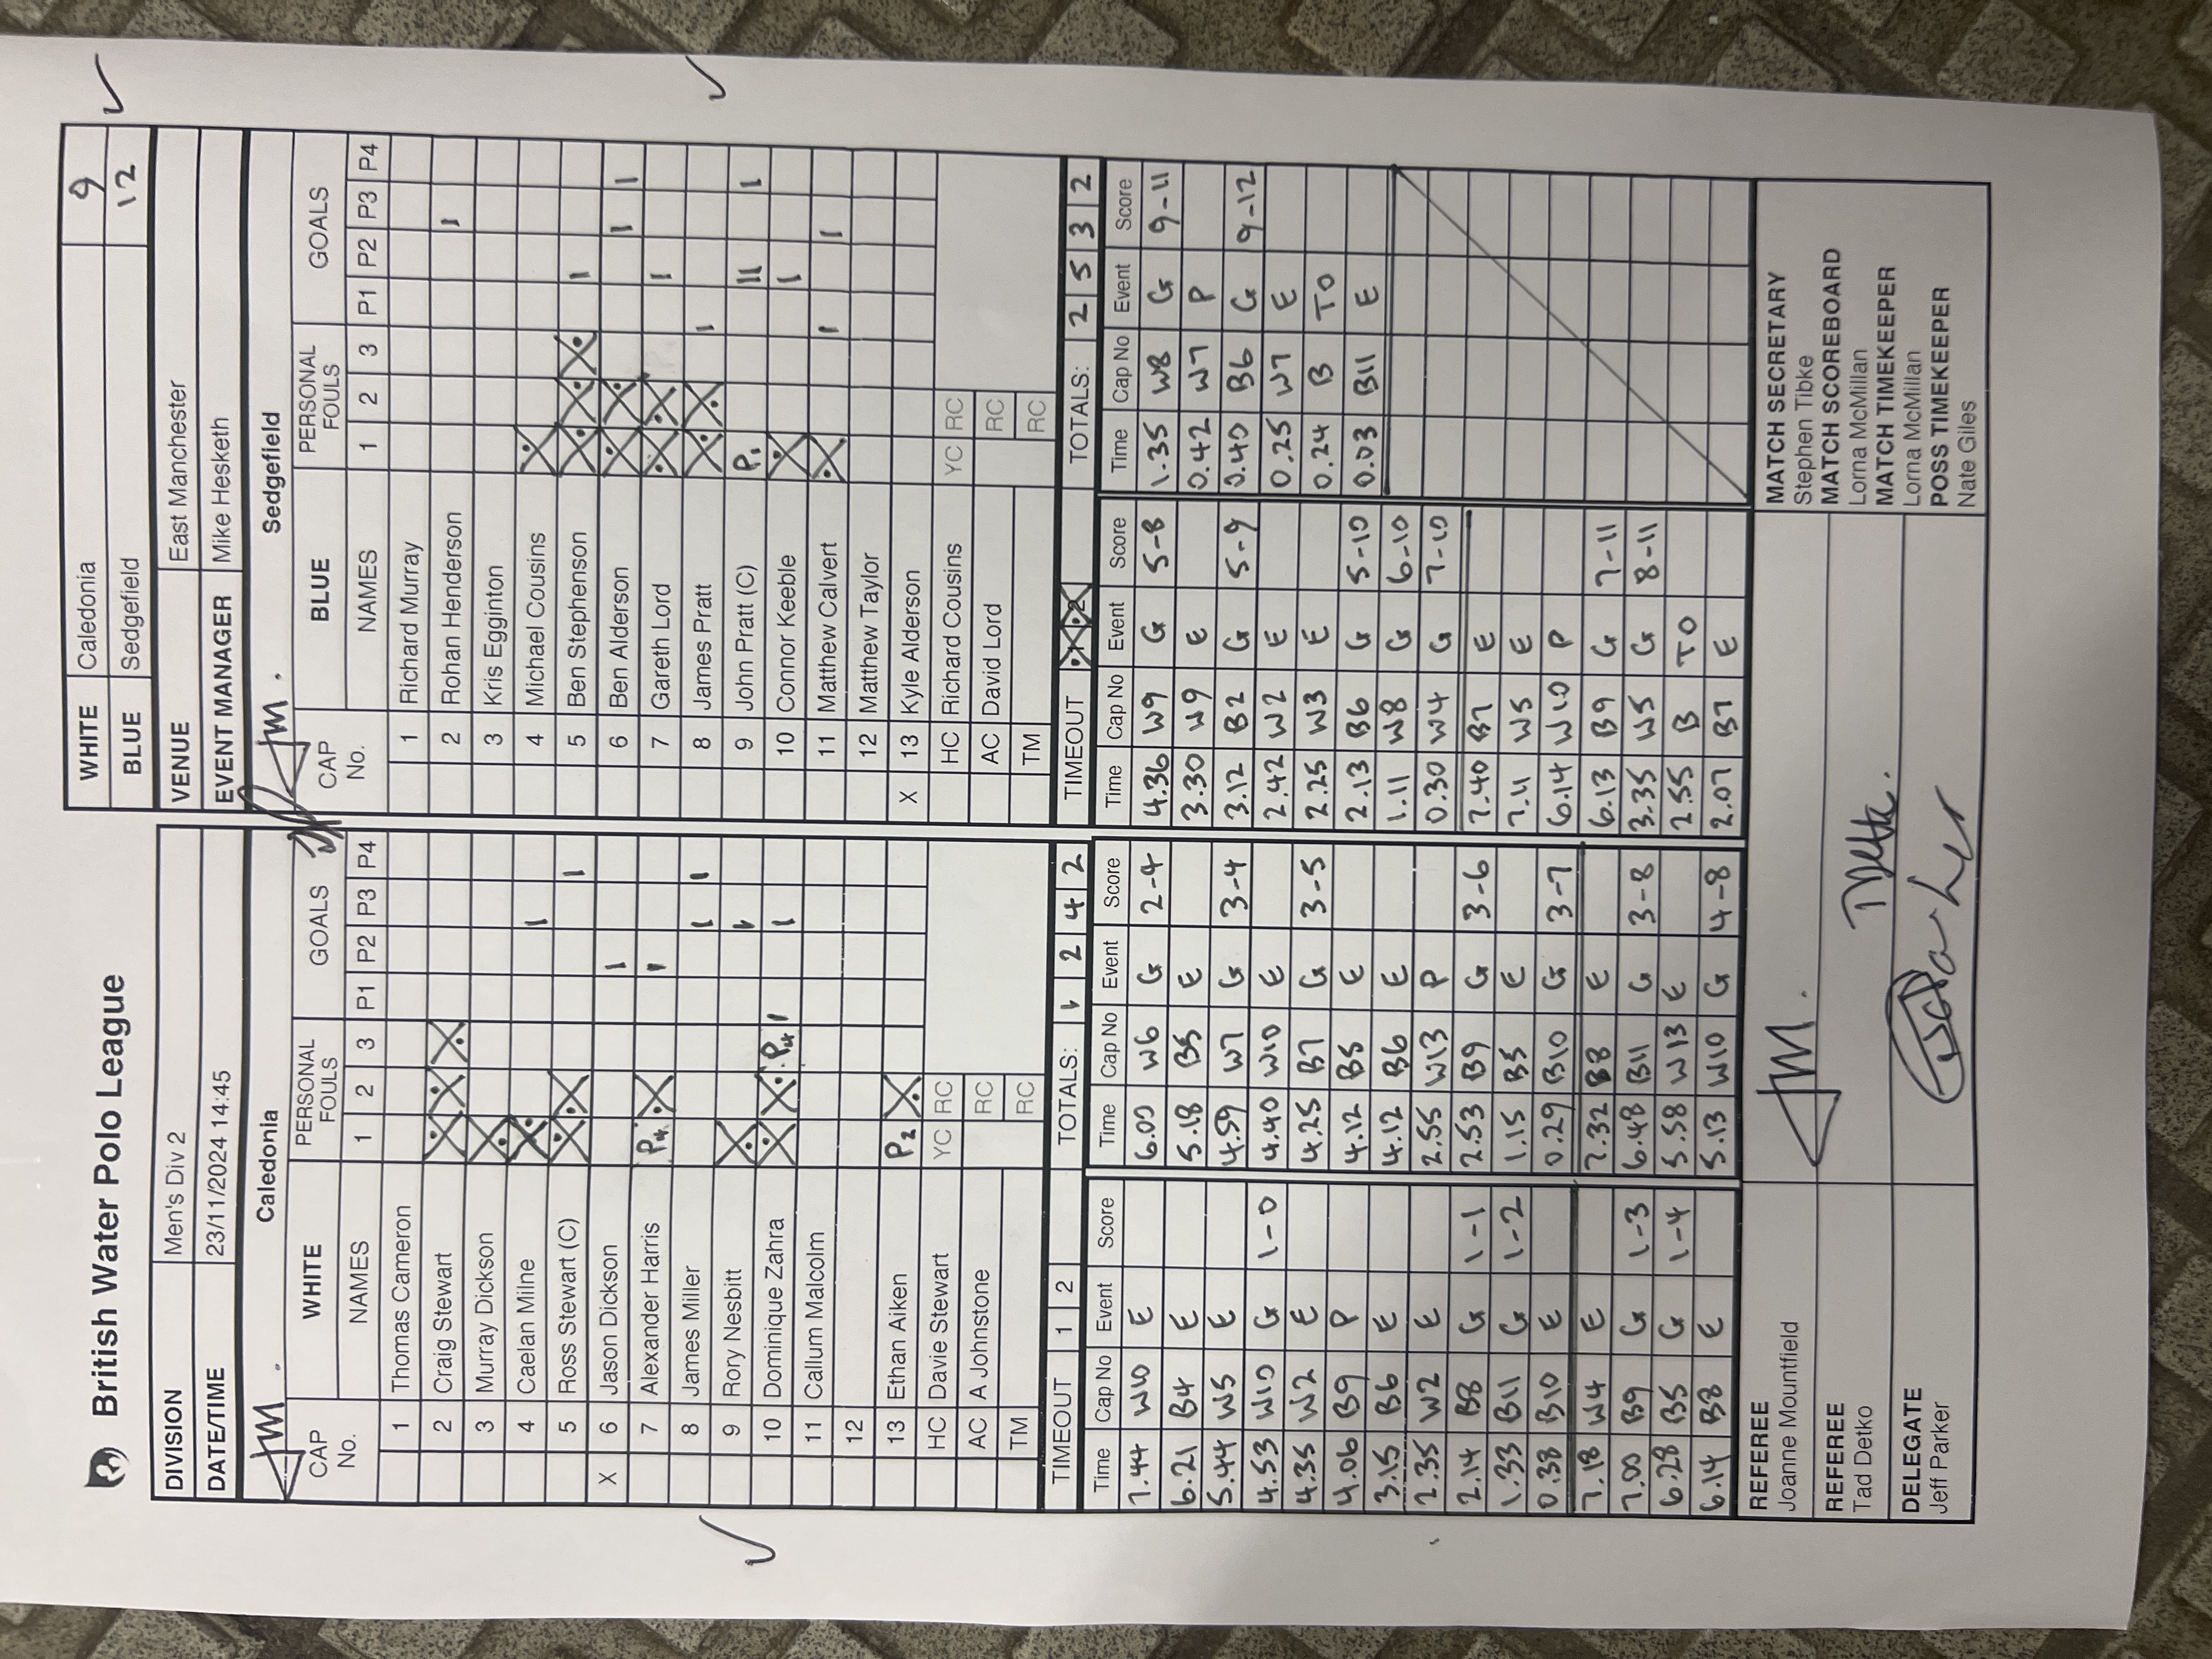 British Water Polo League
DIVISION Men's Div 2
DATE/TIME 23/11/2024 14:45
WHITE Caledonia 9
BLUE Sedgefield 12
VENUE East Manchester
EVENT MANAGER Mike Hesketh
Caledonia
CAP No. WHITE NAMES PERSONAL FOULS 1 2 3 GOALS P1 P2 P3 P4
1 Thomas Cameron
2 Craig Stewart X X X
3 Murray Dickson X
4 Caelan Milne X I
5 Ross Stewart (C) X X I
X 6 Jason Dickson I
7 Alexander Harris P4 X I
8 James Miller I I
9 Rory Nesbitt X I
10 Dominique Zahra X X P4 I I
11 Callum Malcolm
12
13 Ethan Aiken P2 X
HC Davie Stewart YC RC
AC A Johnstone RC
TM RC
TIMEOUT 1 2 TOTALS: 1 2 4 2
Sedgefield
CAP No. BLUE NAMES PERSONAL FOULS 1 2 3 GOALS P1 P2 P3 P4
1 Richard Murray
2 Rohan Henderson I
3 Kris Egginton
4 Michael Cousins X
5 Ben Stephenson X X X I
6 Ben Alderson X X I I
7 Gareth Lord X X I
8 James Pratt X X I
9 John Pratt (C) P1 II I
10 Connor Keeble X I
11 Matthew Calvert X I I
12 Matthew Taylor
X 13 Kyle Alderson
HC Richard Cousins YC RC
AC David Lord RC
TM RC
TIMEOUT 1 2 TOTALS: 2 5 3 2
Time Cap No Event Score
7.44 W10 E
6.21 B4 E
5.44 W5 E
4.53 W10 G 1-0
4.35 W2 E
4.06 B9 P
3.15 B6 E
2.35 W2 E
2.14 B8 G 1-1
1.33 B11 G 1-2
0.38 B10 E
7.18 W4 E
7.00 B9 G 1-3
6.28 B5 G 1-4
6.14 B8 E
Time Cap No Event Score
6.00 W6 G 2-4
5.18 B5 E
4.59 W7 G 3-4
4.40 W10 E
4.25 B7 G 3-5
4.12 B5 E
4.12 B6 E
2.55 W13 P
2.53 B9 G 3-6
1.15 B5 E
0.29 B10 G 3-7
7.32 B8 E
6.48 B11 G 3-8
5.58 W13 E
5.13 W10 G 4-8
Time Cap No Event Score
4.36 W9 G 5-8
3.30 W9 E
3.12 B2 G 5-9
2.42 W2 E
2.25 W3 E
2.13 B6 G 5-10
1.11 W8 G 6-10
0.30 W4 G 7-10
7.40 B7 E
7.11 W5 E
6.14 W10 P
6.13 B9 G 7-11
3.35 W5 G 8-11
2.55 B TO
2.07 B7 E
Time Cap No Event Score
1.35 W8 G 9-11
0.42 W7 P
0.40 B6 G 9-12
0.25 W7 E
0.24 B TO
0.03 B11 E
REFEREE
Joanne Mountfield
REFEREE
Tad Detko
DELEGATE
Jeff Parker
MATCH SECRETARY
Stephen Tibke
MATCH SCOREBOARD
Lorna McMillan
MATCH TIMEKEEPER
Lorna McMillan
POSS TIMEKEEPER
Nate Giles